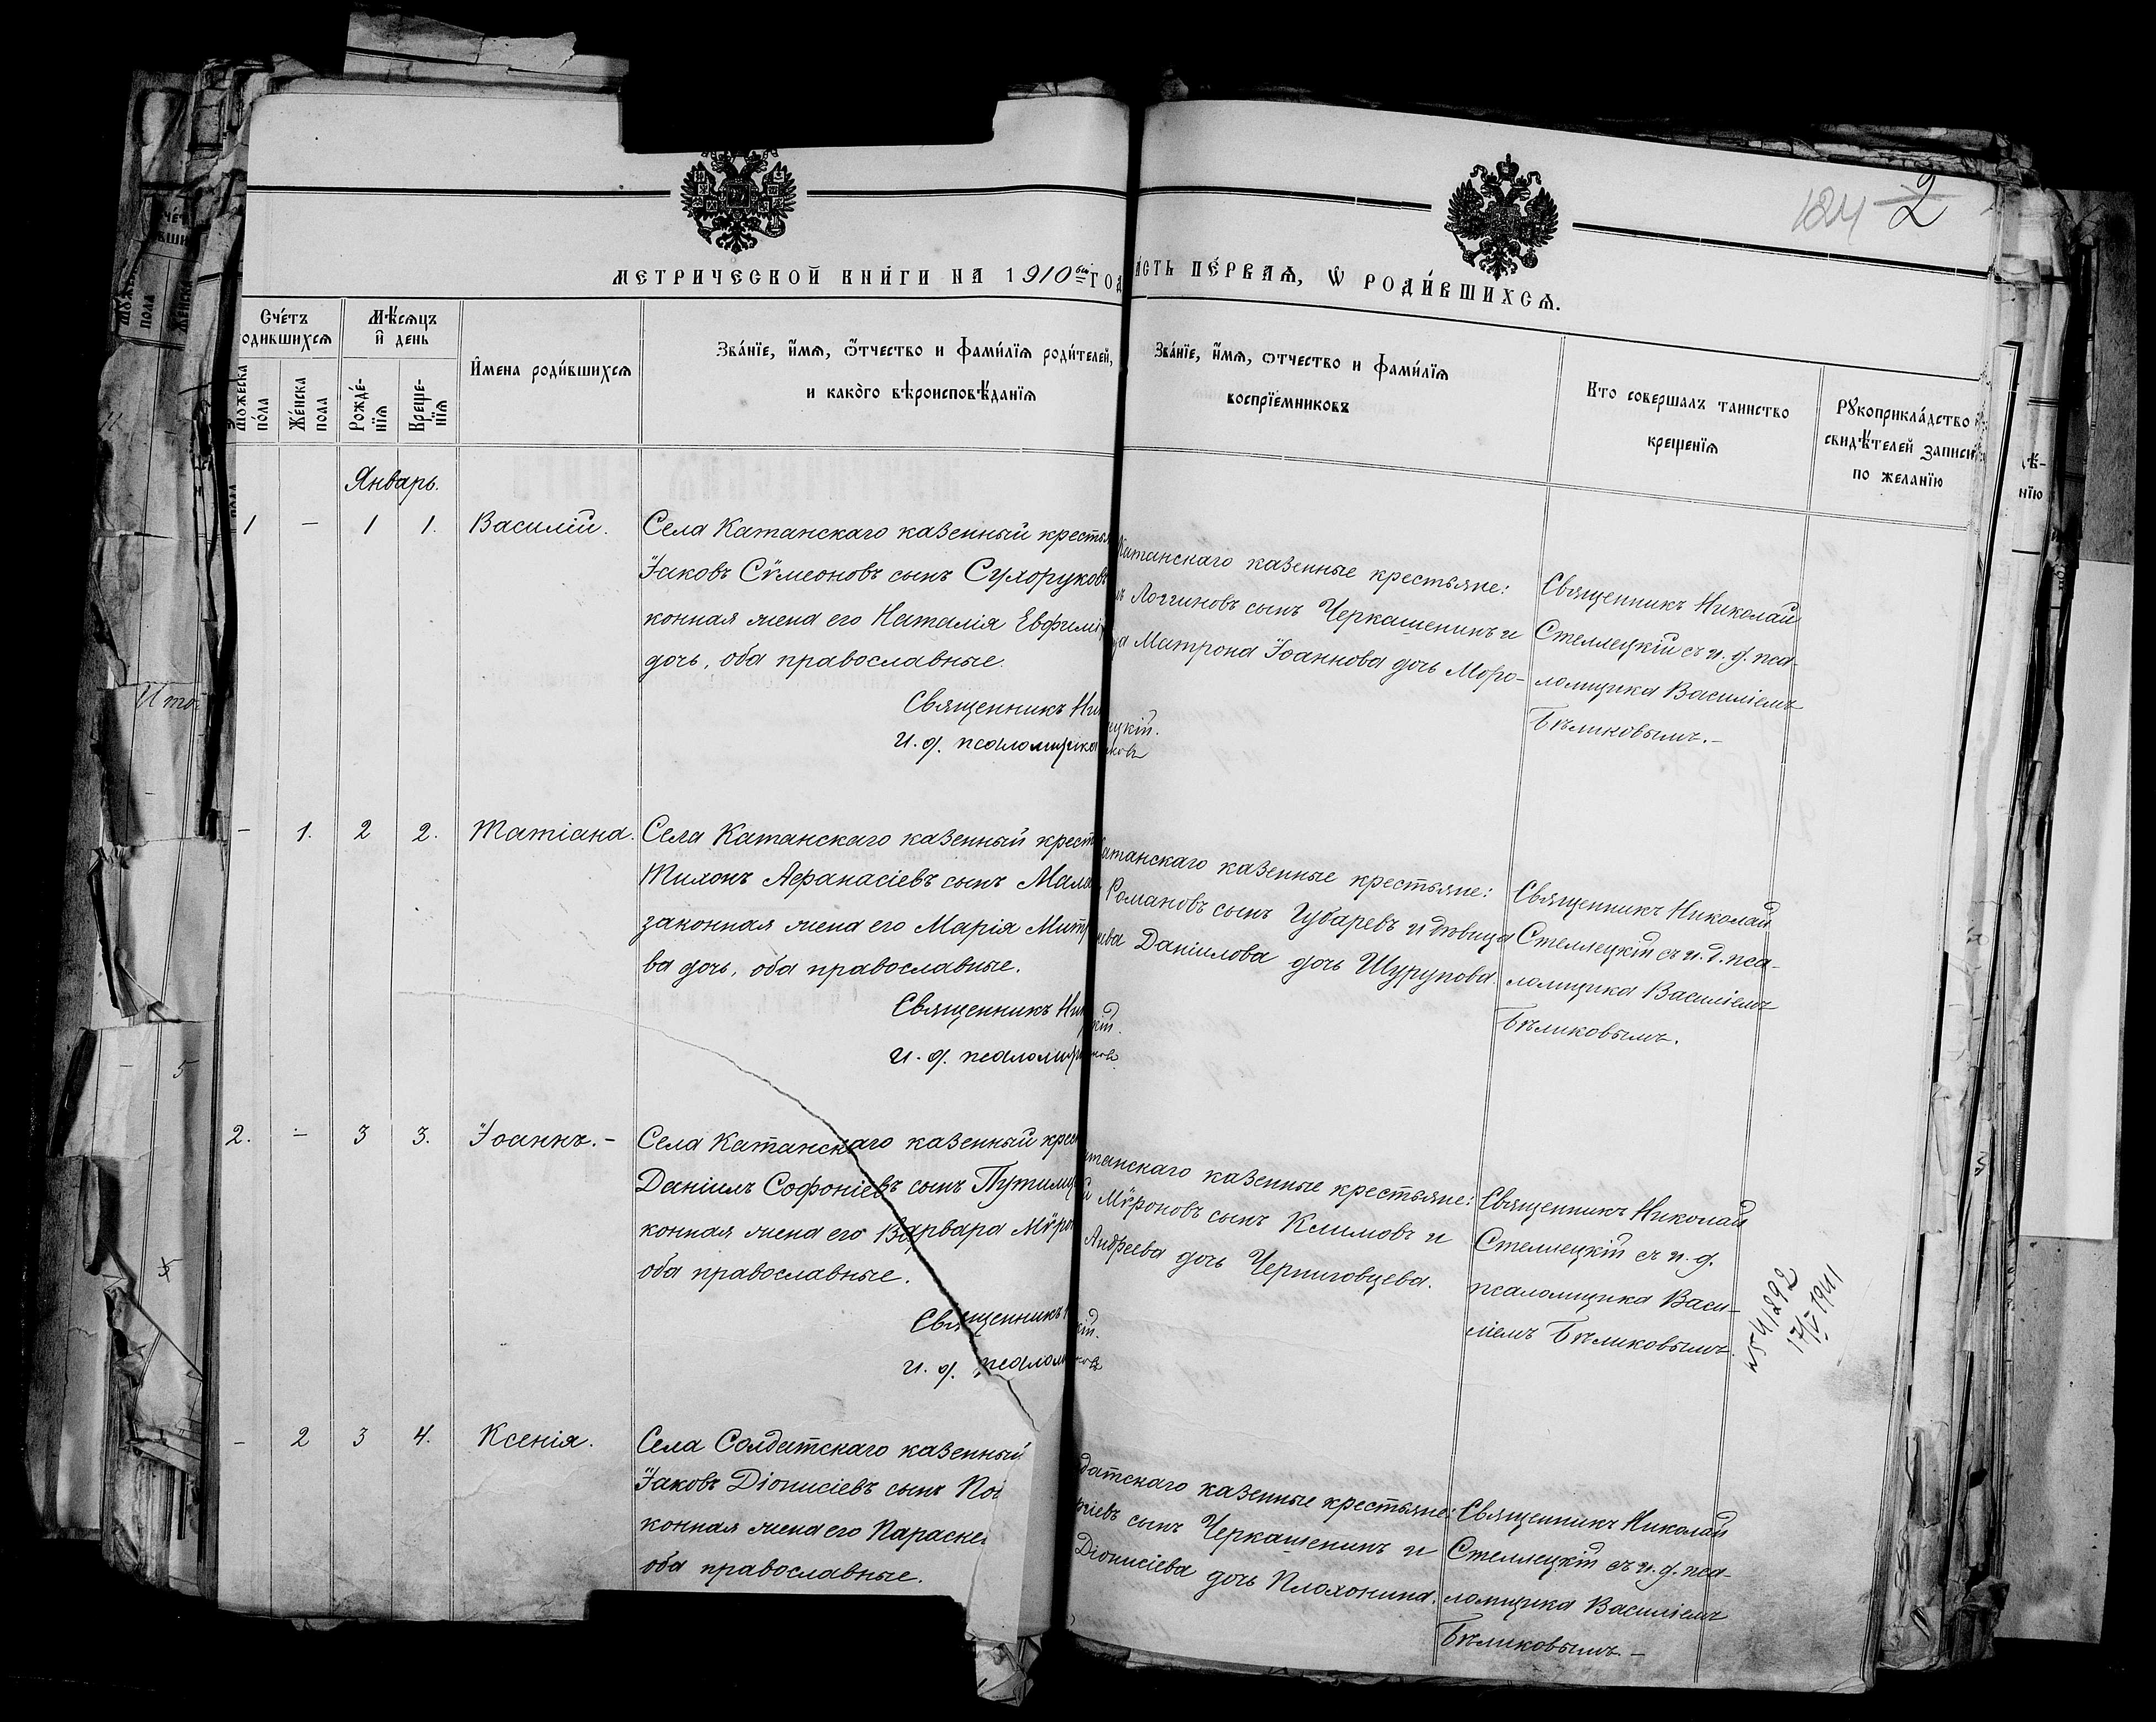 184 2
МЕТРИЧЕСКОЙ КНИ́ГИ НА 1910ый ГОД
ІСТЬ ПЕ́РВАѦ, Ѡ РОДИ́ВШИХСѦ.
Сче́тъ
одившихсѧ
Мѣ́сѧцъ
и день
И҆мена роди́вшихсѧ
Зва́нїе, и҆́мѧ, ѻ҆́тчество и Фами́лїѧ роди́телей,
и како́го вѣроисповѣ́данїѧ
Зва́нїе, и҆́мѧ, ѻтчество и Фами́лїѧ
воспрїемниковъ
Кто совершалъ таинство
крещенїѧ
Рꙋкоприкла́дство
свидѣ́телей записи
по желанїю
Мꙋжеска
по́ла
Же́нска
пола
Рожде́-
нїѧ
Креще-
нїѧ
Январь.
1 — 1 1. Василій.
Села Катанскаго казенный кресть
Іаковъ Сѵмеоновъ сынъ Сухоруковъ
конная жена его Наталія Евфимі
дочь, оба православные.
Священникъ Ни
и. д. псаломщика
Катанскаго казенные крестьяне:
Логгиновъ сынъ Черкашенинъ и
Матрона Іоаннова дочь Моро-
цкій.
ковъ
Священникъ Николай
Стеллецкій съ и. д. пса-
ломщика Василіемъ
Бѣликовымъ.—
— 1. 2 2. Татіана.
Села Катанскаго казенный крест
Тихонъ Афанасіевъ сынъ Мала
законная жена его Марія Митр
ва дочь, оба православные.
Священникъ Ни
и. д. псаломщи
атанскаго казенные крестьяне:
Романовъ сынъ Губаревъ и дѣвица
ева Даніилова дочь Шурупова.
кій.
ковъ.
Священникъ Николай
Стеллецкій съ и. д. пса-
ломщика Василіемъ
Бѣликовымъ.
2. — 3 3. Іоаннъ.—
Села Катанскаго казенный крес
Даніилъ Софоніевъ сынъ Путимц
конная жена его Варвара Мѵро
оба православные.
Священникъ
и. д. псалом
танскаго казенные крестьяне:
Мѵроновъ сынъ Климовъ и
Андреева дочь Черниговцева.
кій.
ковъ
Священникъ Николай
Стеллецкій съ и. д.
псаломщика Васи-
ліемъ Бѣликовымъ.
№ 54,292
17/V 1941
— 2 3 4. Ксенія.
Села Солдатскаго казенный
Іаковъ Діонисіевъ сынъ По
конная жена его Параске
оба православные.
датскаго казенные крестьяне:
кіевъ сынъ Черкашенинъ и
Діонисіева дочь Плохонина.
Священникъ Николай
Стеллецкій съ и. д. пса-
ломщика Василіемъ
Бѣликовымъ.—